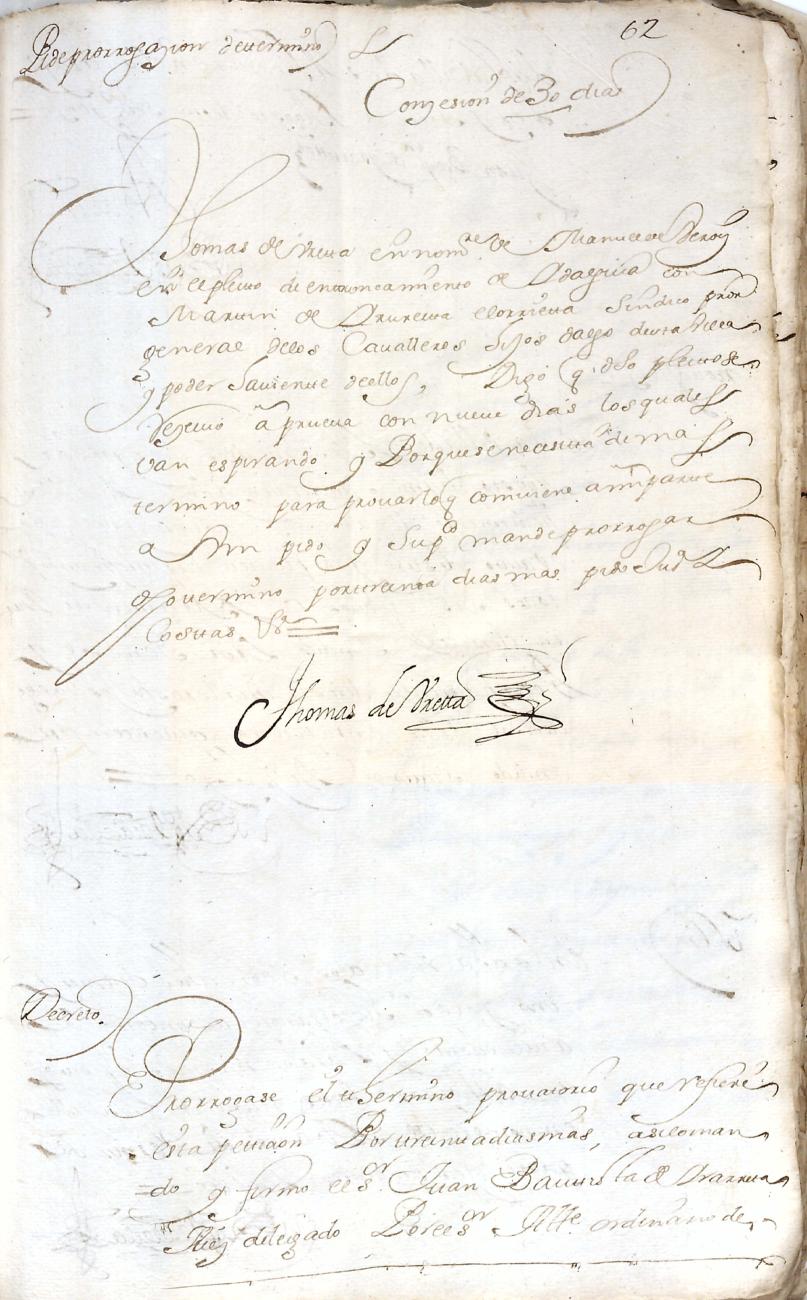 62
P. de prorrogazion de termino
Conzesion de 30 dias
Thomas de Vreta en nomre de Manuel de
en el pleito de entroncamiento de con
Martin de elorrieta Sindico pror
general delos Cavalleros hijos dalgo desta villa
y poder havientte dellos, Digo q dho pleito se
rezevio a prueva con nueve dias los quales
van espirando y Porque se necesita de mas
termino para provar lo q comviene a mi parte
a Vm pido y Supco mande prorrogar
dho termino por treinta dias mas pido Justa
Costtas Va
Thomas de Vretta
Decreto.
Prorrogase el thermino provatorio que refiere
esta peticion Por treinta dias mas, asi lo man
do y firmo el sor Juan Bauttista de
Juez delegado Por el sor Alle ordinario de